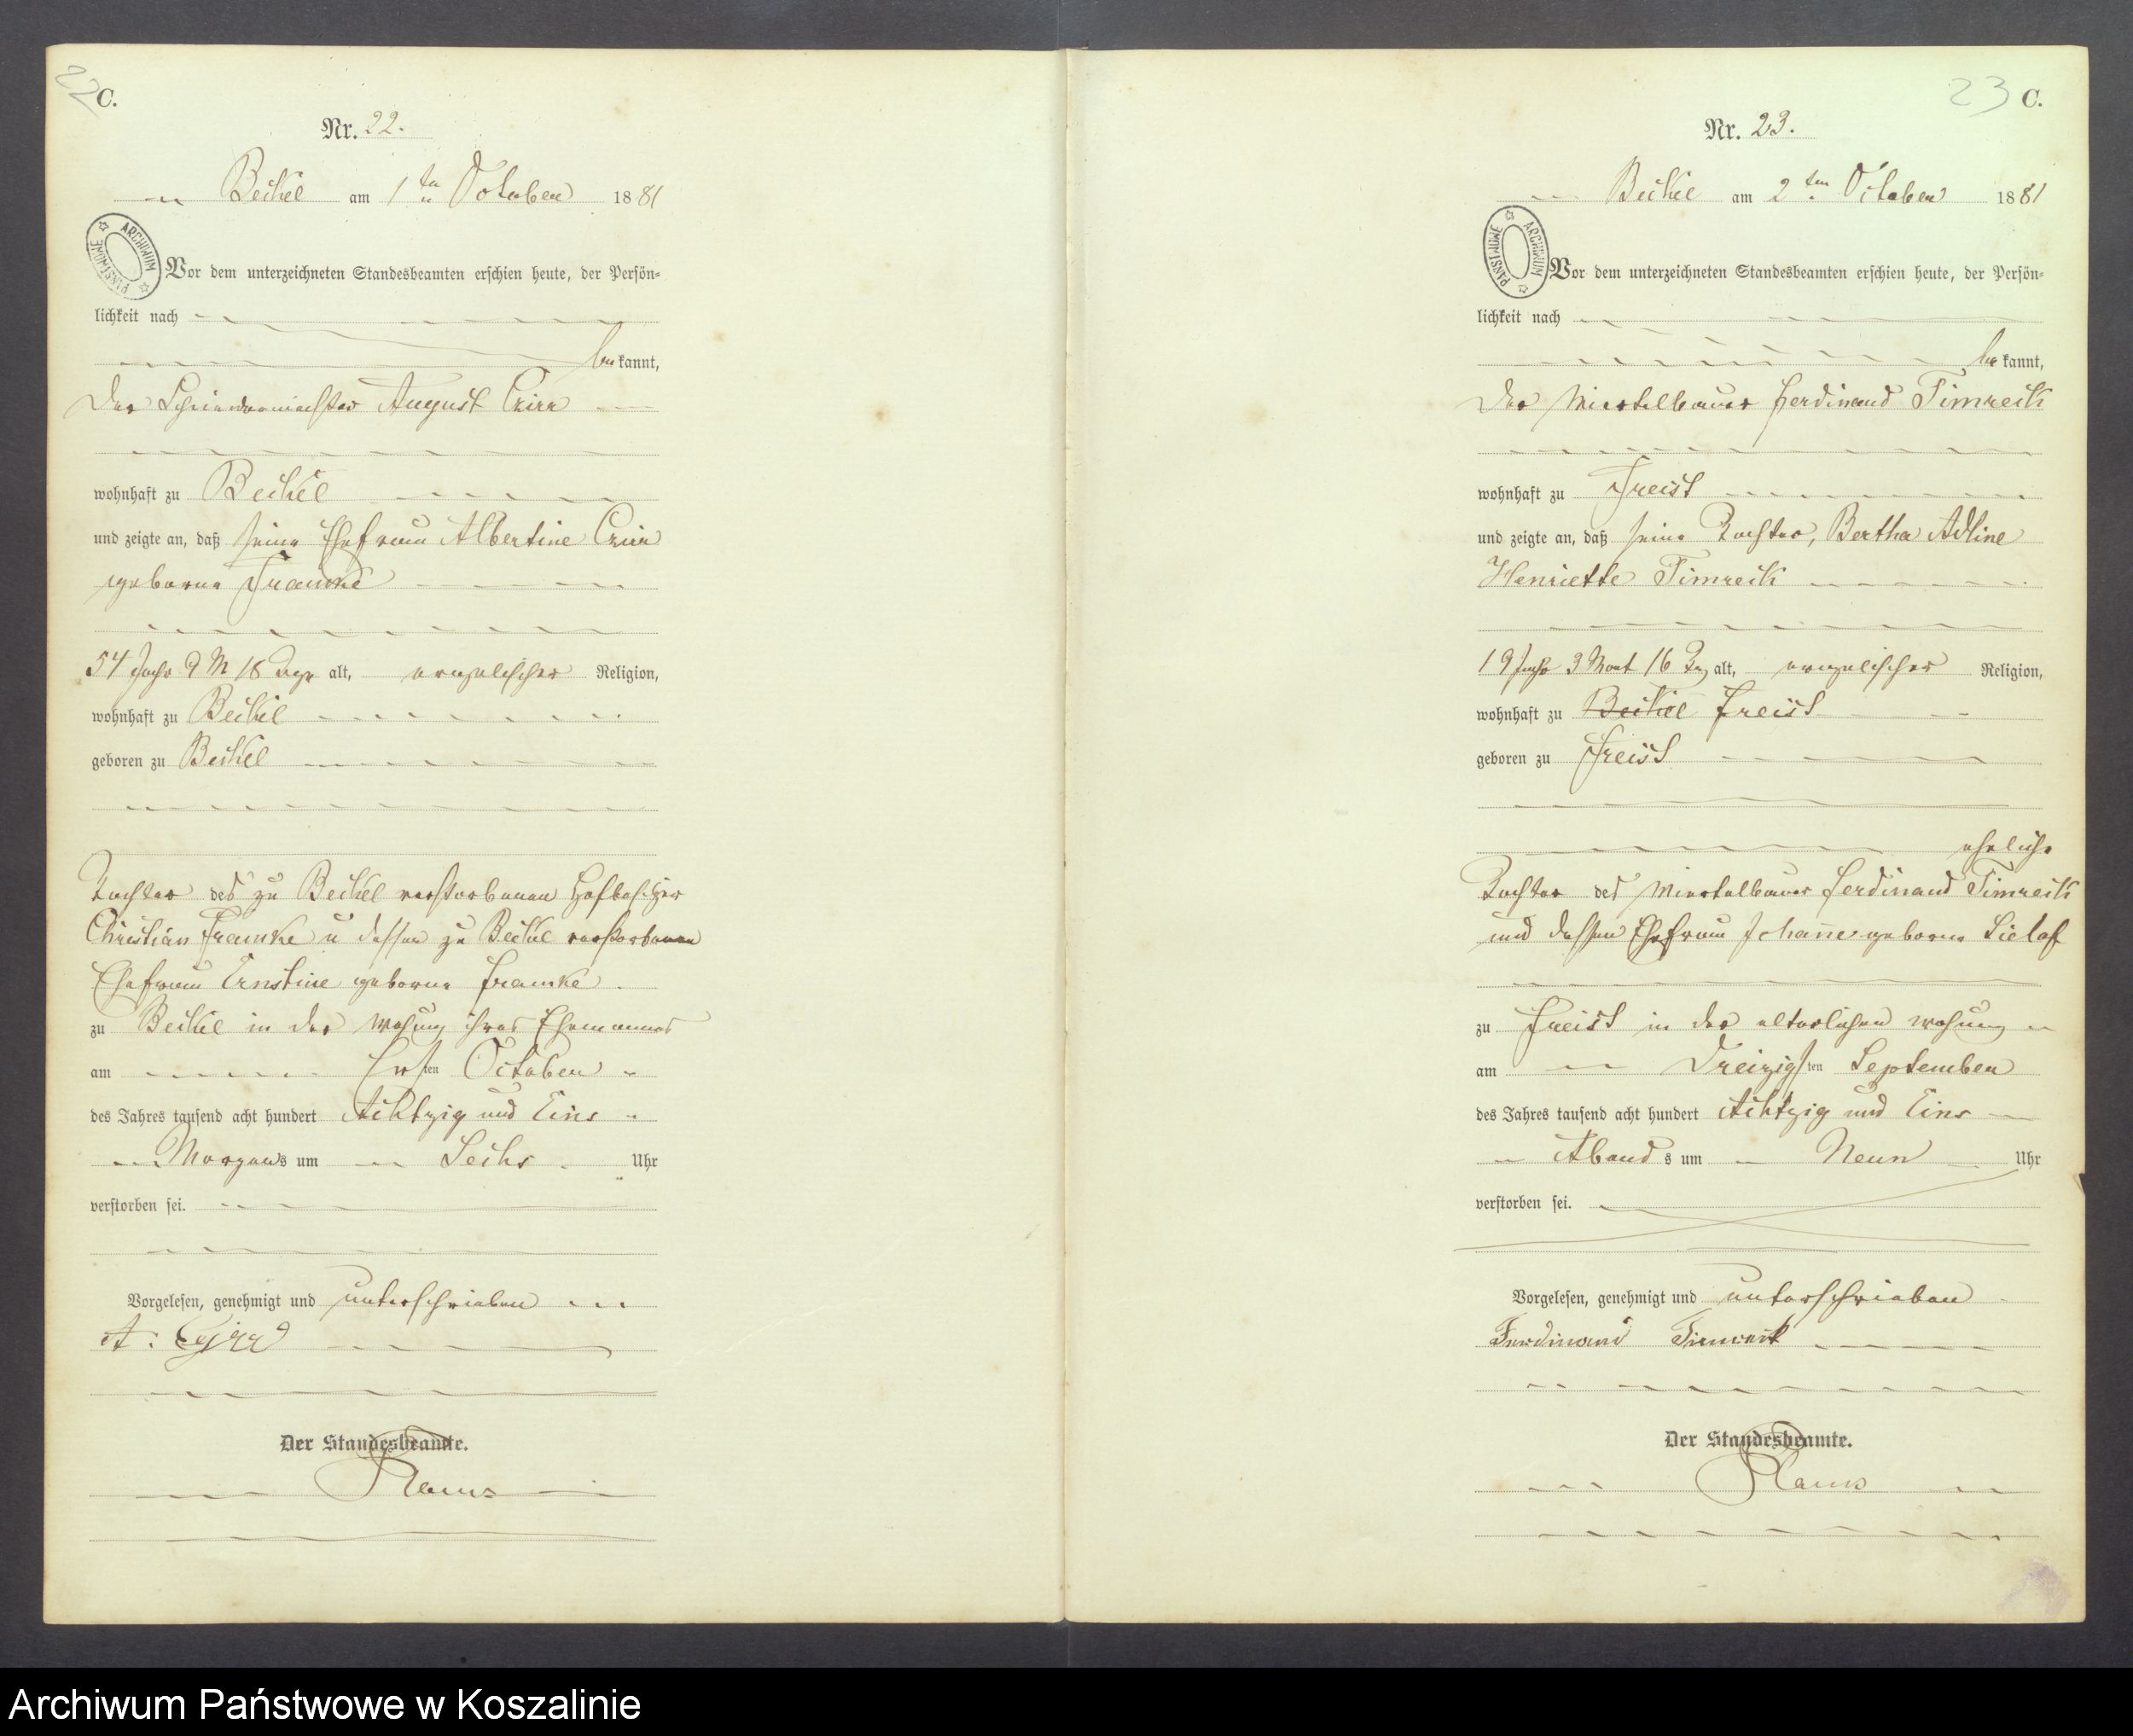 22 C.
Nr. 22.
Beckel am 1ten October 1881
ARCHIWUM PAŃSTWOWE
Vor dem unterzeichneten Standesbeamten erschien heute, der Persön-
lichkeit nach
bekannt,
der August
wohnhaft zu Beckel
und zeigte an, daß seine Ehefrau Albertine
geborne Framke
54 Jahr 9 M 18 Tage alt, evangelischer Religion,
wohnhaft zu Beckel
geboren zu Beckel
Tochter des zu Beckel verstorbenen Hofbesitzer
Christian Framke u dessen zu Beckel verstorbenen
Ehefrau Ernstine geborne Framke
zu Beckel in der Wohung ihres Ehemannes
am Ersten October
des Jahres tausend acht hundert Achtzig und Eins
Morgens um Sechs Uhr
verstorben sei.
Vorgelesen, genehmigt und unterschrieben
A:
Der Standesbeamte.
23 C.
Nr. 23.
Beckel am 2ten October 1881
ARCHIWUM PAŃSTWOWE
Vor dem unterzeichneten Standesbeamten erschien heute, der Persön-
lichkeit nach
bekannt,
der Viertelbauer Ferdinand Timreck
wohnhaft zu Freist
und zeigte an, daß seine Tochter, Bertha Adline
Henriette Timreck
19 Jahr 3 Mont 16 Tg alt, evangelischer Religion,
wohnhaft zu Beckel Freist
geboren zu Freist
eheliche
Tochter des Viertelbauer Ferdinand Timreck
und dessen Ehefrau Johanne geborne Sielaf
zu Freist in der elterlichen Wohung
am Dreizigsten September
des Jahres tausend acht hundert Achtzig und Eins
Abends um Neun Uhr
verstorben sei.
Vorgelesen, genehmigt und unterschrieben
Ferdinand Timreck
Der Standesbeamte.
Archiwum Państwowe w Koszalinie